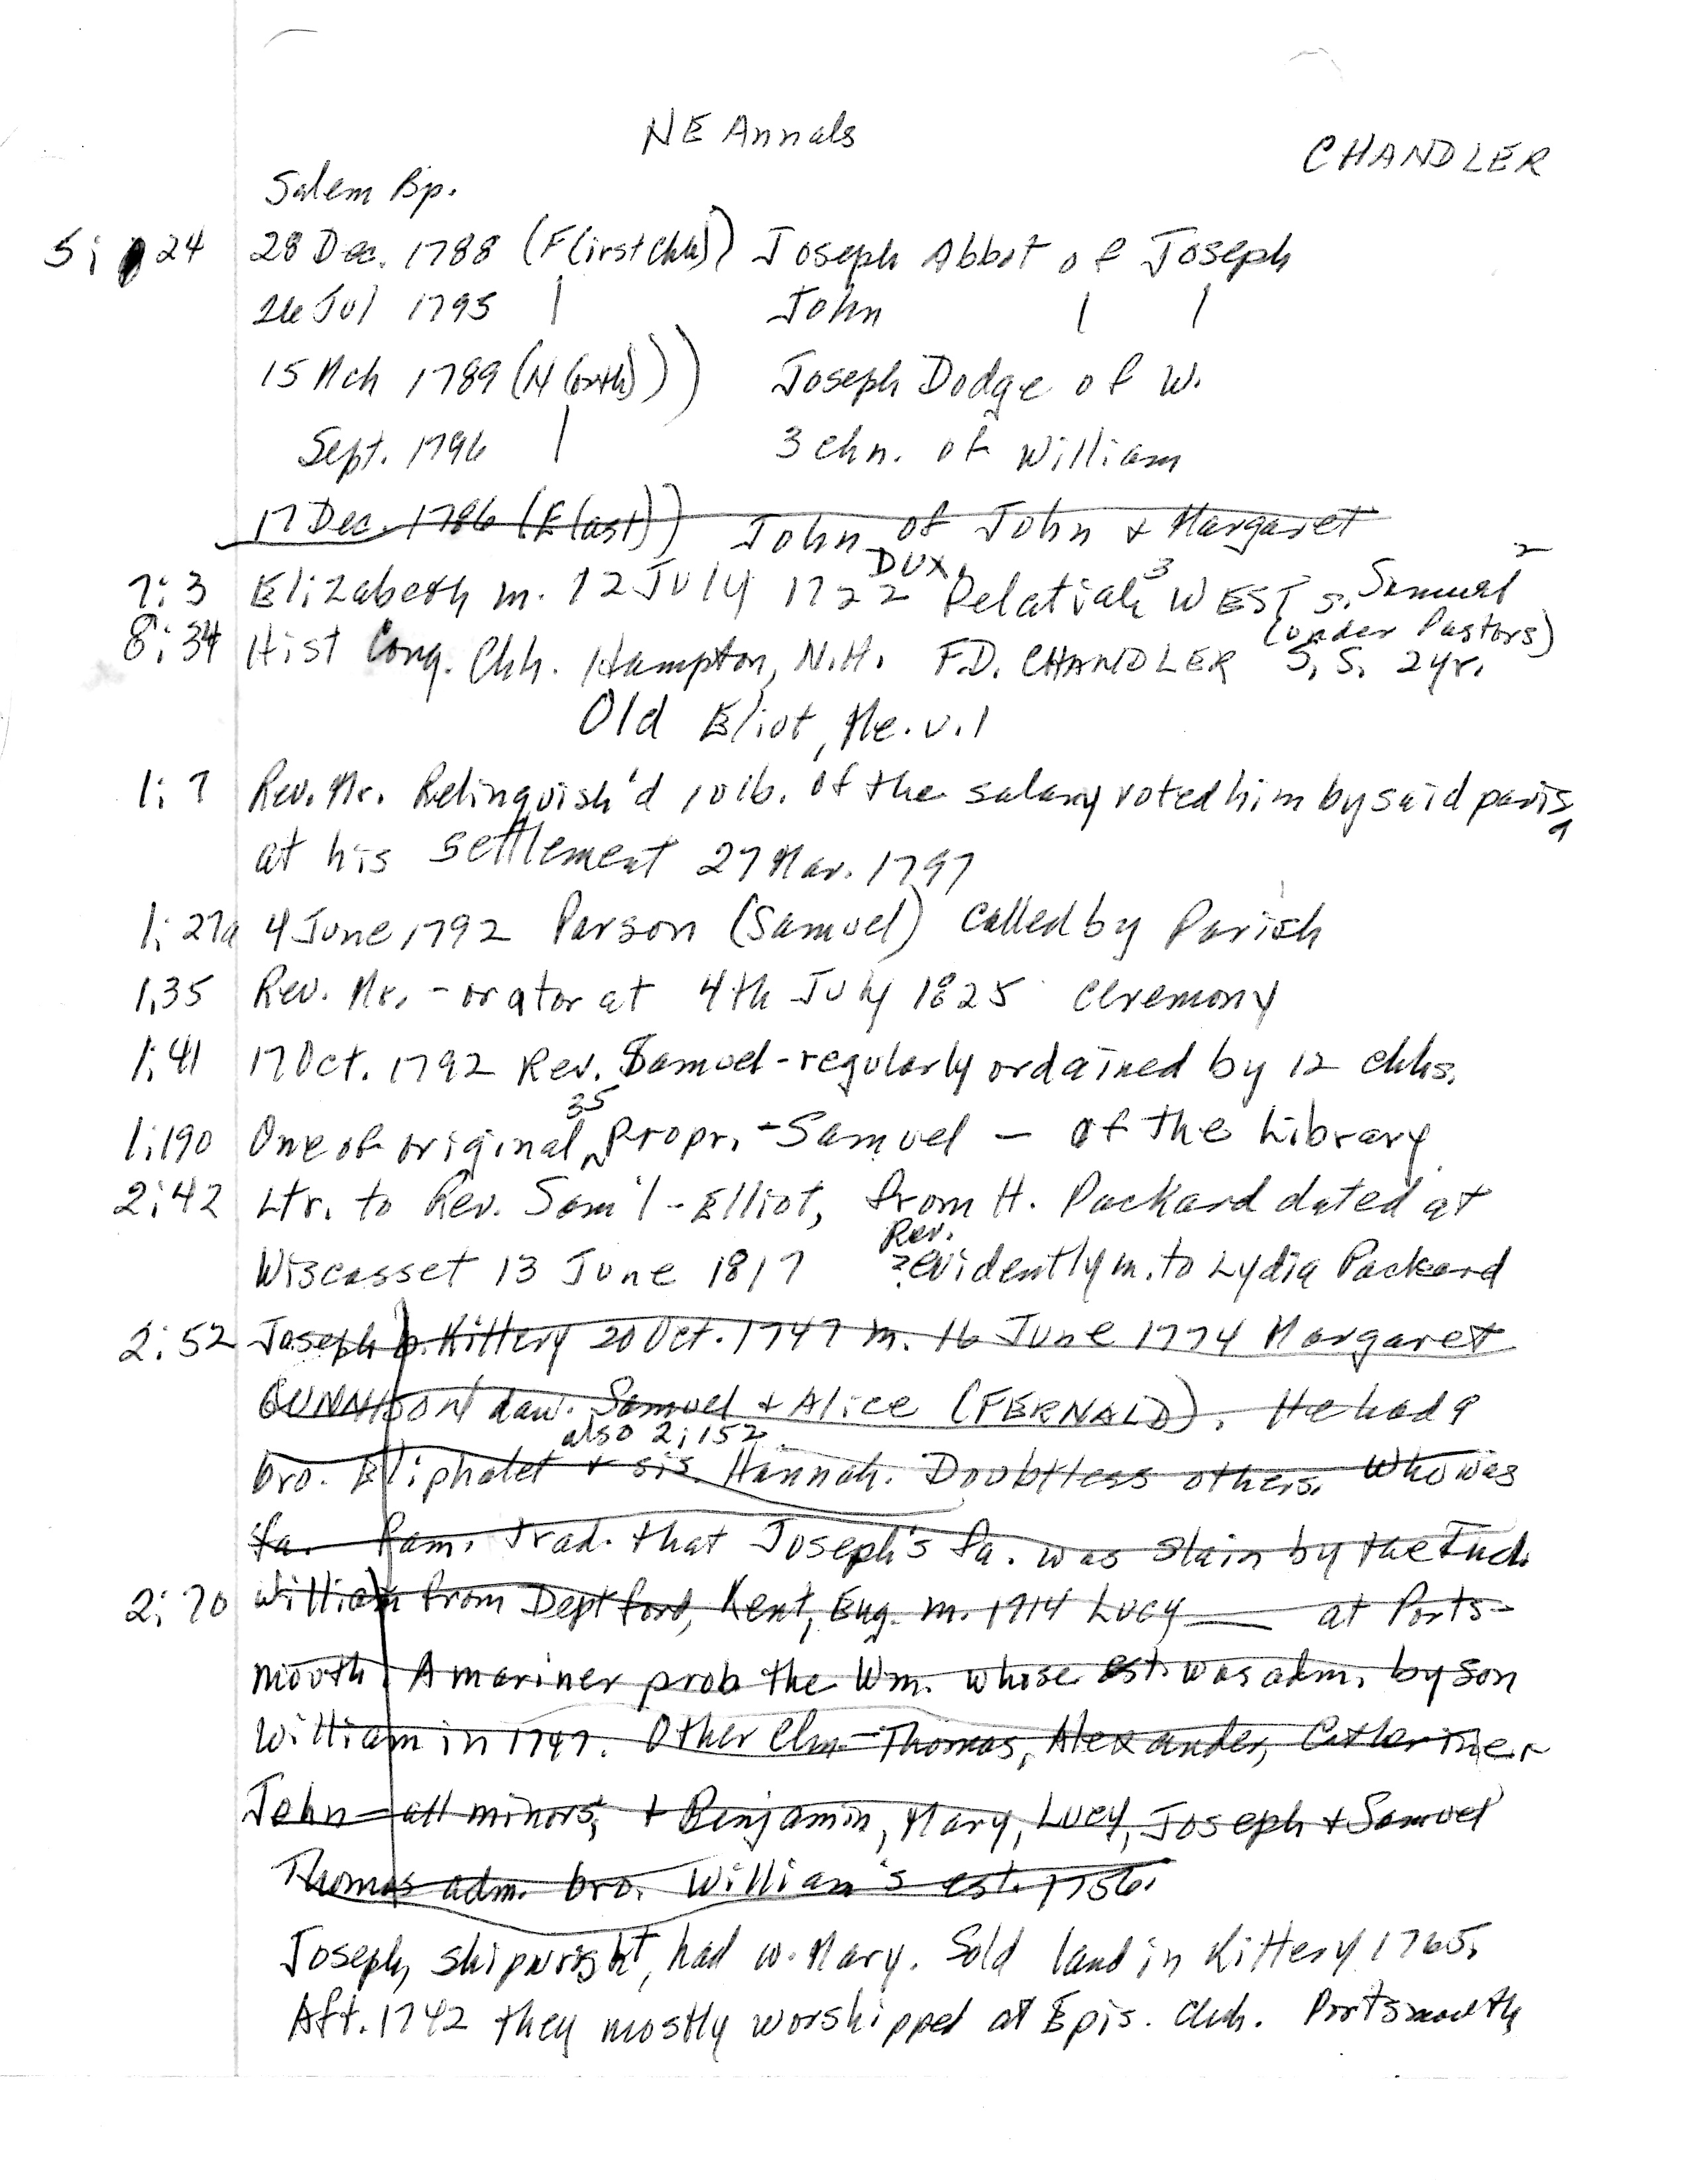 NE Annals
CHANDLER
Salem Bp.
5; 24 28 Dec. 1788 (F(irst Chh)) Joseph Abbot of Joseph
26 Jul 1795 | John | |
15 Mch 1789 (N(orth)) Joseph Dodge of W.
Sept. 1796 | 3 chn. of William
17 Dec. 1786 (E(ast)) John of John & Margaret
7:3 Elizabeth m. 12 July 1722 DUX. Pelatiah 3 WEST s. Samuel 2
(under Pastors)
8:34 Hist Cong. Chh. Hampton, N.H. F.D. CHANDLER S.S. 2yr.
Old Eliot, Me. v.1
1:7 Rev. Mr. Relinquish'd 10 lb. of the salary voted him by said paris
at his settlement 27 Mar. 1797
1:27a 4 June 1792 Parson (Samuel) called by Parish
1,35 Rev. Mr. - orator at 4th July 1825 ceremony
1:41 17 Oct. 1792 Rev. Samuel - regularly ordained by 12 chhs.
1:190 One of original 35 Propr. - Samuel - of the Library
2:42 Ltr. to Rev. Sam'l - Elliot, from H. Packard dated at
Rev.
Wiscasset 13 June 1817 ?evidently m. to Lydia Packard
2:52 Joseph b. Kittery 20 Oct. 1747 m. 16 June 1774 Margaret
GUNNISON dau. Samuel & Alice (FERNALD). He had a
also 2;152
bro. Eliphalet & sis. Hannah. Doubtless others. Who was
fa. Fam. trad. that Joseph's fa. was slain by the Ind.
2:70 William from Deptford, Kent, Eng. m. 1714 Lucy —— at Ports-
mouth. A mariner prob the Wm. whose est. was adm. by son
William in 1747. Other chn - Thomas, Alexander, Catherine &
John - all minors, & Benjamin, Mary, Lucy, Joseph & Samuel
Thomas adm. bro. William's est. 1756.
Joseph, shipwright, had w. Mary. Sold land in Kittery 1765.
Aft. 1742 they mostly worshipped at Epis. Chh. Portsmouth